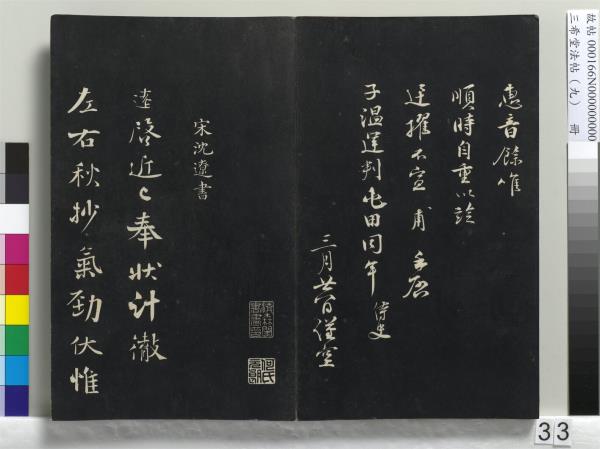 惠音餘惟
順時自重以詮
廷擢不宣甫手啓
子温運判屯田同年侍史
三月廿日謹空
宋沈遼書
遼啓近已奉狀計徹
左右秋抄氣勁伏惟
故帖 000166N000000000
三希堂法帖（九） 冊
33